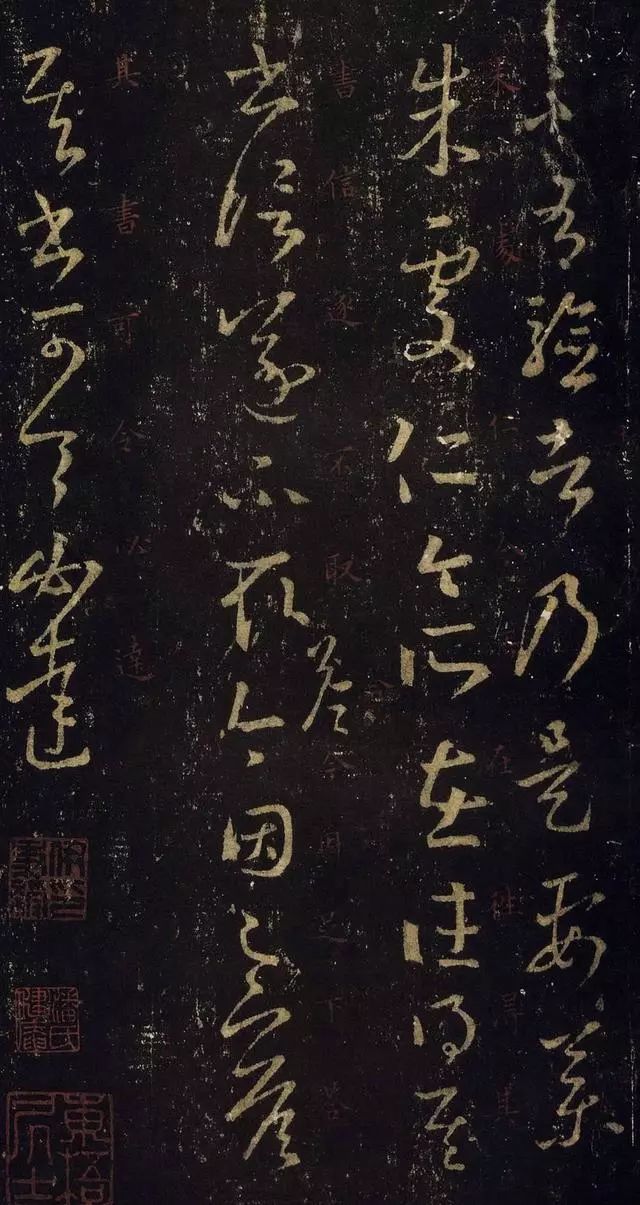 不有驗者乃是要藥
朱處仁所在往得其
朱處仁今所在往得其
書信遂不取答今因足下答
書信遂不取答今因足下答
其書可令必達
其書可令必達